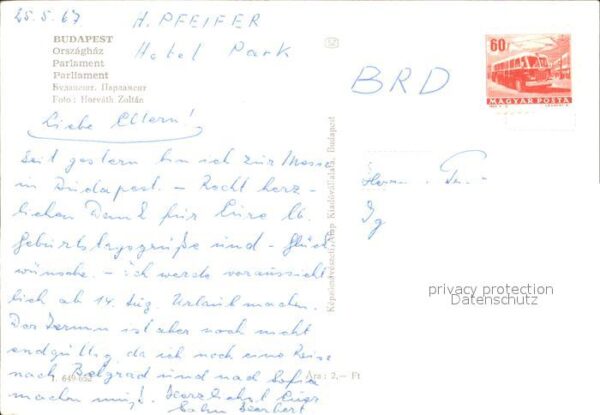 25.5.67 H. PFEIFER
Hotel Park
BUDAPEST
Országház
Parlament
Parliament
Будапешт. Парламент
Foto: Horváth Zoltán
BRD
60f
MAGYAR POSTA
Liebe Eltern!
Seit gestern bin ich zur Messe
in Budapest. - Recht herz-
lichen Dank für Eure lb.
Geburtstagsgrüße und - Glück
wünsche. - ich werde voraussicht
lich ab 14. Aug. Urlaub machen.
Der Termin ist aber noch nicht
endgültig da ich noch eine Reise
nach Belgrad und nach Sofia
machen muß. Herzlichst Euer
Sohn Herbert
Képzőművészeti Alap Kiadóvállalata, Budapest
privacy protection
Datenschutz
Ára: 2,— Ft